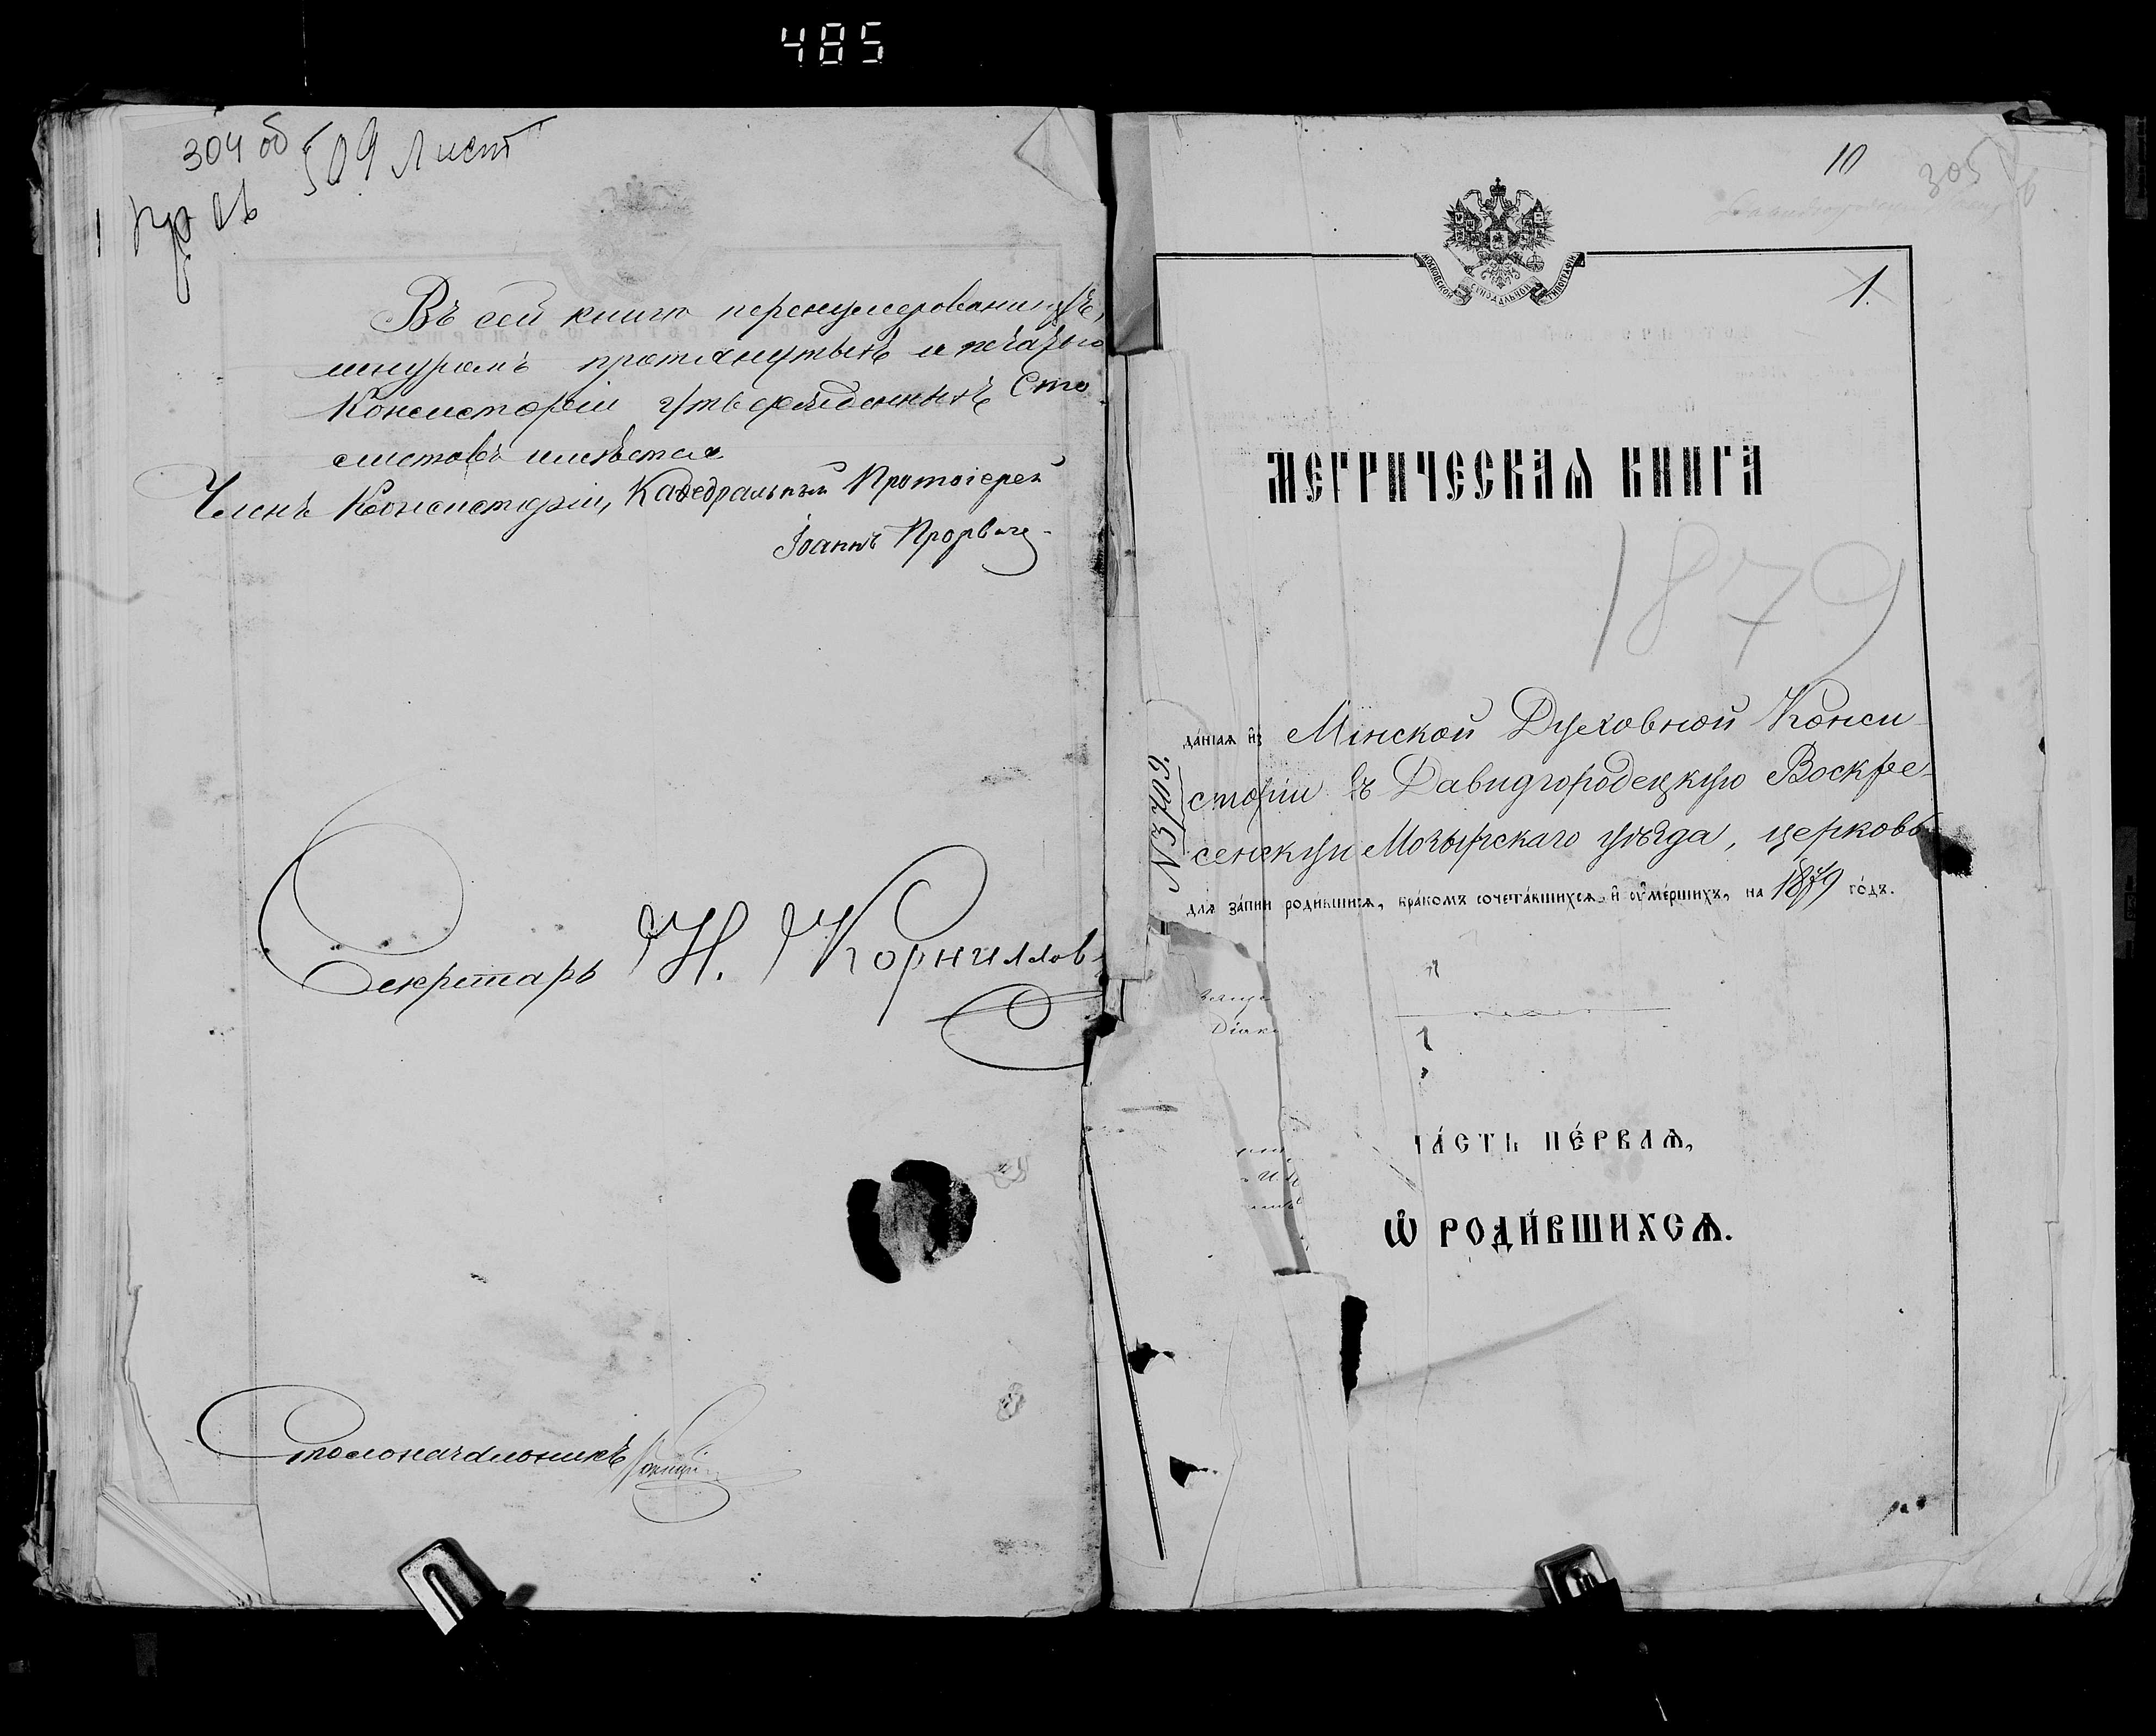 485
304 об 509 Лист
Въ сей книгѣ перенумерованныхъ,
шнуромъ протянутыхъ и печатью
Консисторіи утвержденныхъ Сто
листовъ имѣется
Членъ Консисторіи, Кафедральный Протоіерей
Іоаннъ
Секретарь Н. Корниллов
Столоначальникъ
10
305
МОСКОВСКОЙ СѴНОДАЛЬНОЙ ТИПОГРАФІИ
1.
МЕТРИЧЕСКАѦ КНИГА
1879
да́ннаѧ и҆з̾ Минской Духовной Конси
сторіи въ Давидгородецкую Воскре-
сенскую Мозырскаго уѣзда, церковь
№ 3709.
длѧ за́писи роди́вшихсѧ, бра́комъ сочета́вшихсѧ, и҆ ᲂу҆ме́ршихъ, на 1879 го́дъ.
Діак
ЧА́СТЬ ПЕ́РВАѦ,
Ѽ РОДИ́ВШИХСѦ.